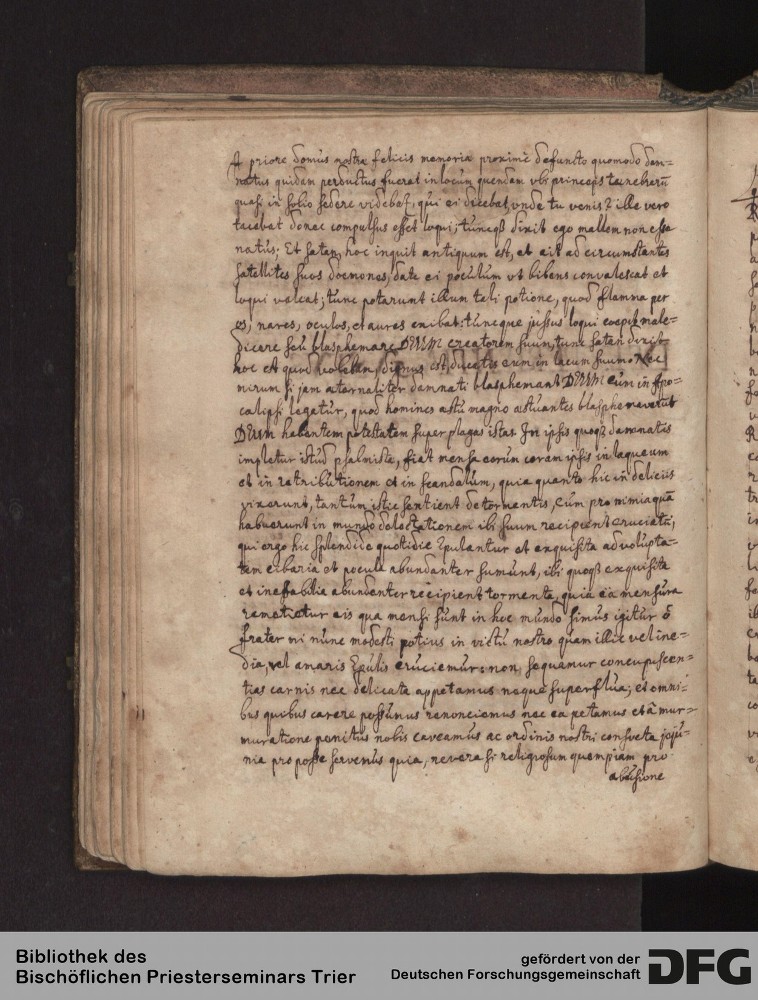 A priore domus nostræ felicis memoriæ proxime defuncto quomodo dam=
natus quidam perductus fuerat in locum quendam vbi princeps tenebrarū
quasi in solio sedere videbat, qui ei dicebat vnde tu venis? ille vero
tacebat donec compulsus esset loqui; tuncq dixit ego mallem non esse
natus; Et satan, hoc inquit antiquum est, et ait ad circumstantes
satellites suos dæmones, date ei poculum vt bibens convalescat et
loqui valeat; tunc potarunt illum tali potione, quod flamma per
os, nares, oculos, et aures exibat: tuncque jussus loqui coepit male=
dicere seu blasphemare DEUM creatorem suum, tunc satan dixit
hoc est quod volebam, dignus est, ducatis eum in lacum suum. Nec
mirum si jam æternaliter damnati blasphemant DEUM cum in Apo=
calipsi legatur, quod homines æstu magno æstuantes blasphemaverūt
DEUM habentem potestatem super plagas istas. In ipsis quoq damnatis
impletur istud psalmistæ, fiat mensa eorum coram ipsis in laqueum
et in retributionem et in scandalum, quia quanto hic in deliciis
vixerunt, tantum istic sentient de tormentis, Cum pro nimia quā
habuerunt in mundo delectationem ibi suum recipient cruciatū,
qui ergo hic splendide quotidie Epulantur et exquisita ad volupta=
tem cibaria et pocula abundanter sumunt, ibi quoq exquisita
et ineffabilia abundenter recipient tormenta, quia ea mensura
remetietur eis qua mensi sunt in hoc mundo simus igitur ô
frater mi nunc modesti potius in victu nostro quam illic vel ine=
dia, vel amaris Epulis cruciemur: non sequamur concupiscen=
tias carnis nec delicata appetamus neque superflua; et omni=
bus quibus carere possumus renonciemus nec ea petamus et â mur=
muratione penitus nobis caveamus ac ordinis nostri consueta jeju=
nia pro posse servemus quia, revera si religiosum quempiam pro
abusione
Bibliothek des
Bischöflichen Priesterseminars Trier
gefördert von der
Deutschen Forschungsgemeinschaft
DFG